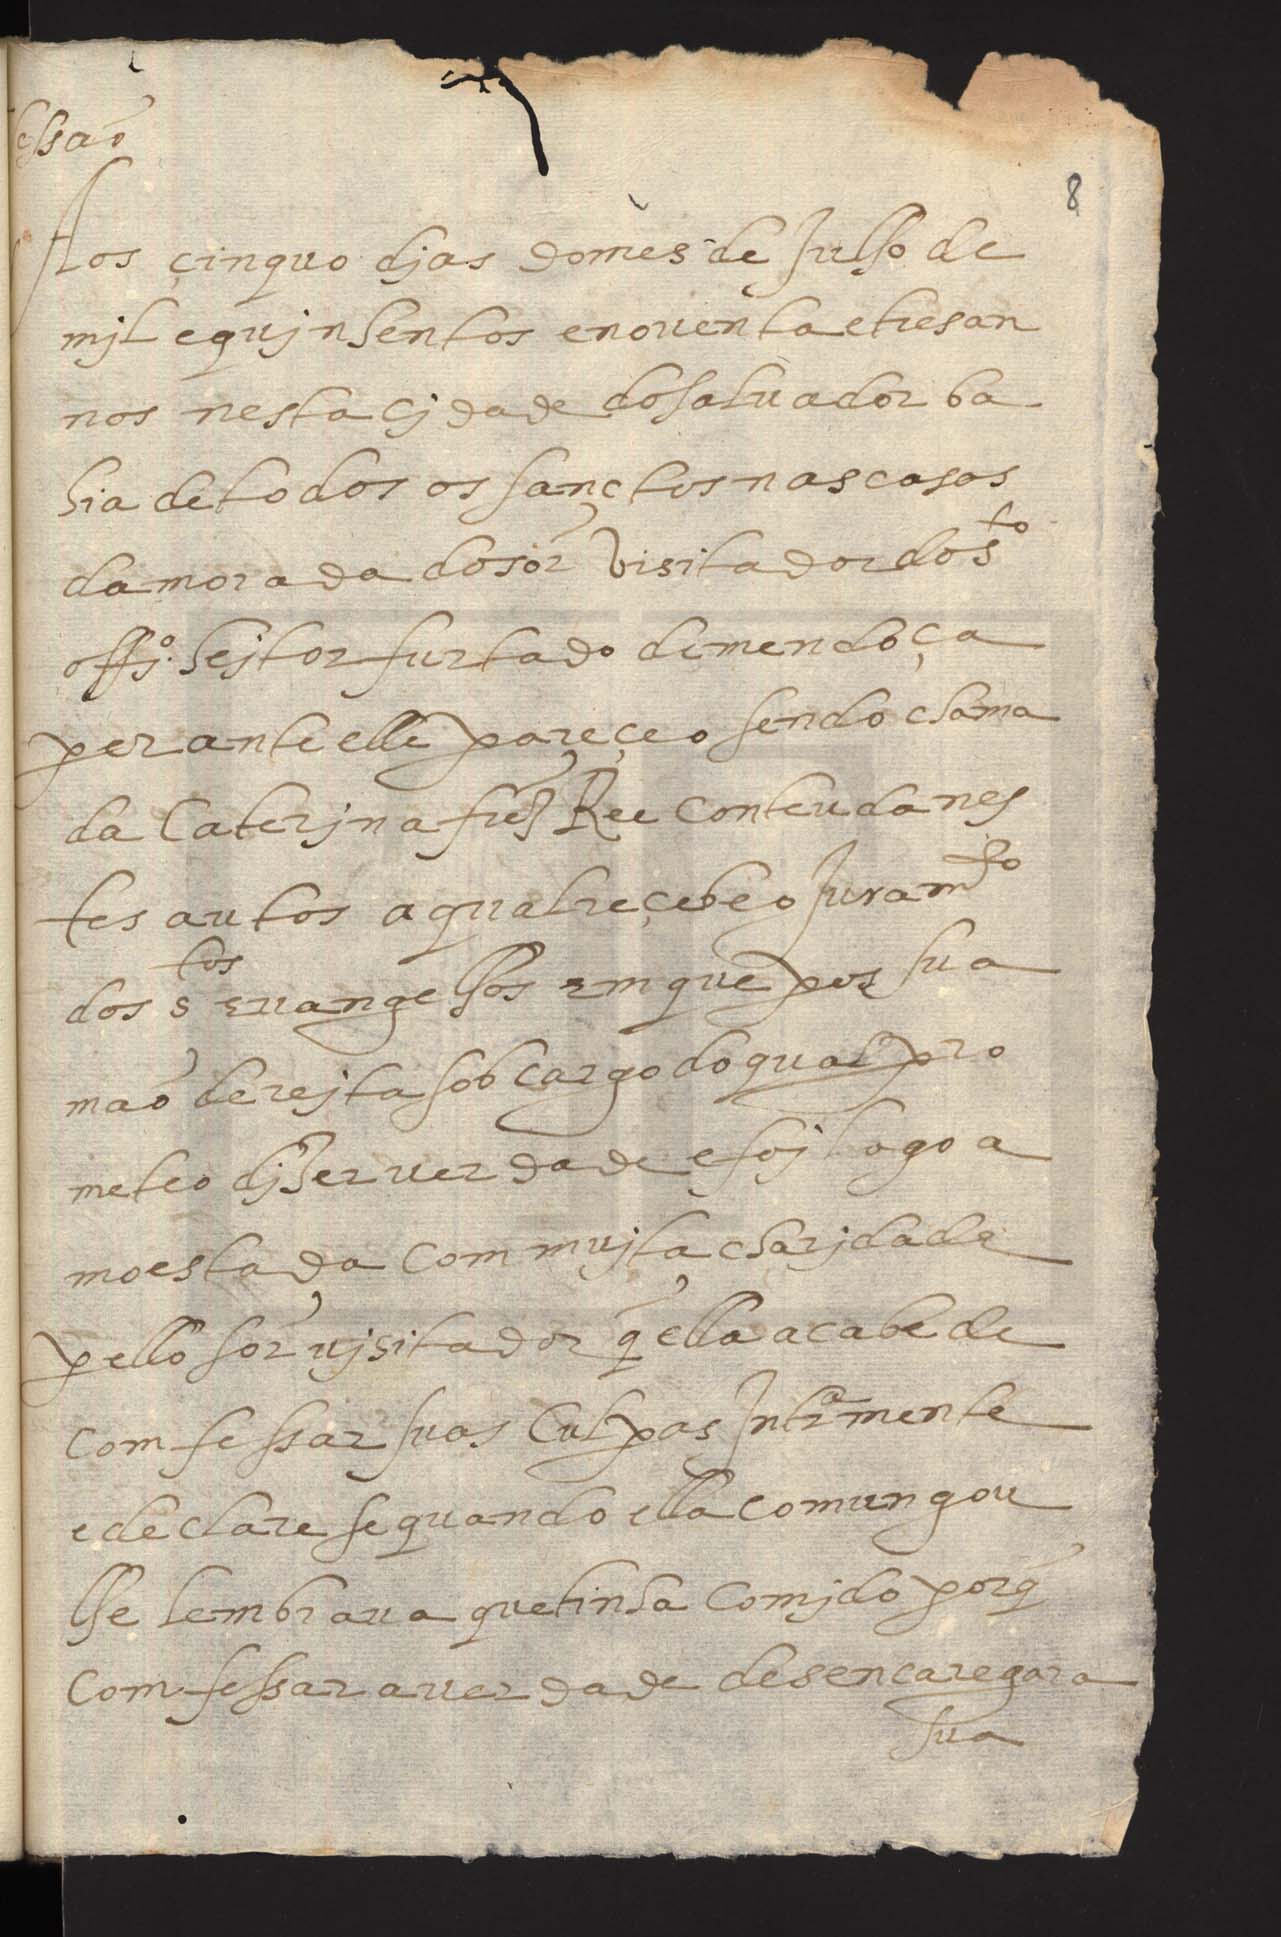 ssaõ
8
Aos çinquo djas do mes de Julho de
mjl e qujnhentos e nouenta e tres an
nos nesta cjdade do saluador ba
hia de todos os sanctos nas casas
da morada do sõr visitador do s.to
offj.º hejtor furtado de mendoça
perante elle pareçeo sendo chama
da Caterjna frz Ree conteuda nes
tes autos a qual reçebeo Juram.to
dos s.tos euangelhos em que pos sua
maõ derejta sob cargo do qual pro
meteo djzer uerdade e foj logo a
moestada com mujta charjdade
pello sõr ujsitador q̃ ella acabe de
comfessar suas Culpas Intr.amente
e declare se quando ella comungou
lhe lembraua que tinha comjdo porq̃
comfessar a uerdade desencaregara
sua